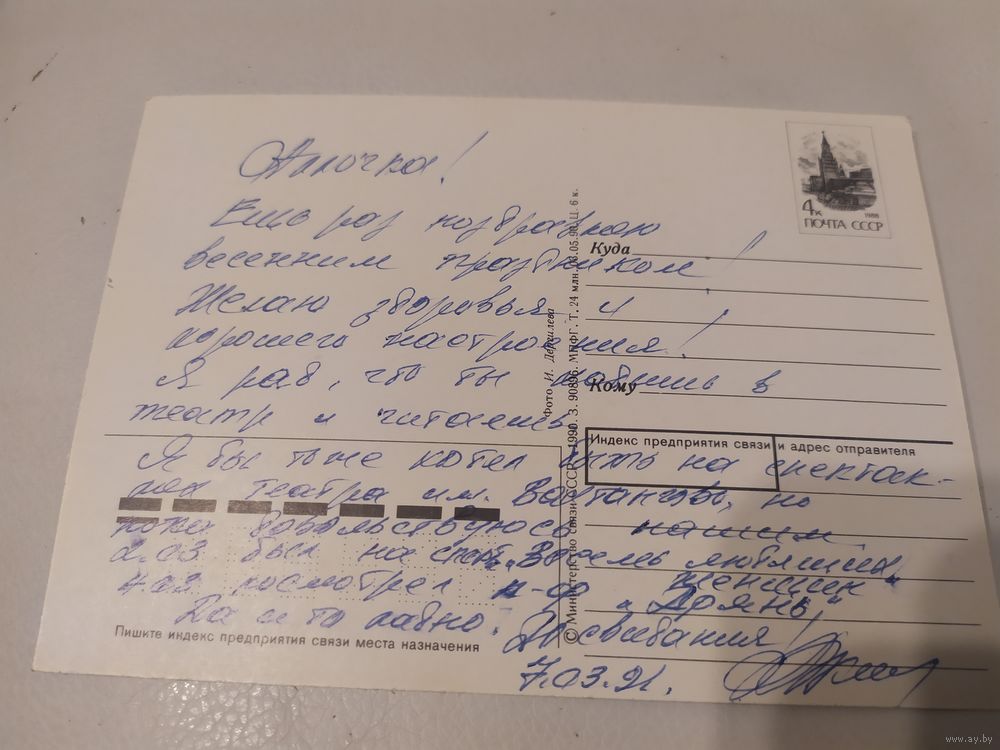 Аллочка!
Ещё раз поздравляю
весенним праздником!
Желаю здоровья и
хорошего настроения!
Я рад, что ты ходишь в
театр и читаешь.
Я бы тоже хотел быть на спектак-
лях театра им. Вахтангова, но
пока довольствуюсь нашим
2.03 был на спект. "Восемь любящих
женщин"
4.03 посмотрел к-ф "Дрянь"
Да и то ладно. До свидания!
7.03.91.
4к
1988
ПОЧТА СССР
Куда
Кому
Индекс предприятия связи и адрес отправителя
Пишите индекс предприятия связи места назначения
Фото И. Дергилева
© Министерство связи СССР. 1990. З. 90896. МПФГ. Т. 24 млн. 03.05.90. Ц. 6 к.
www.ay.by